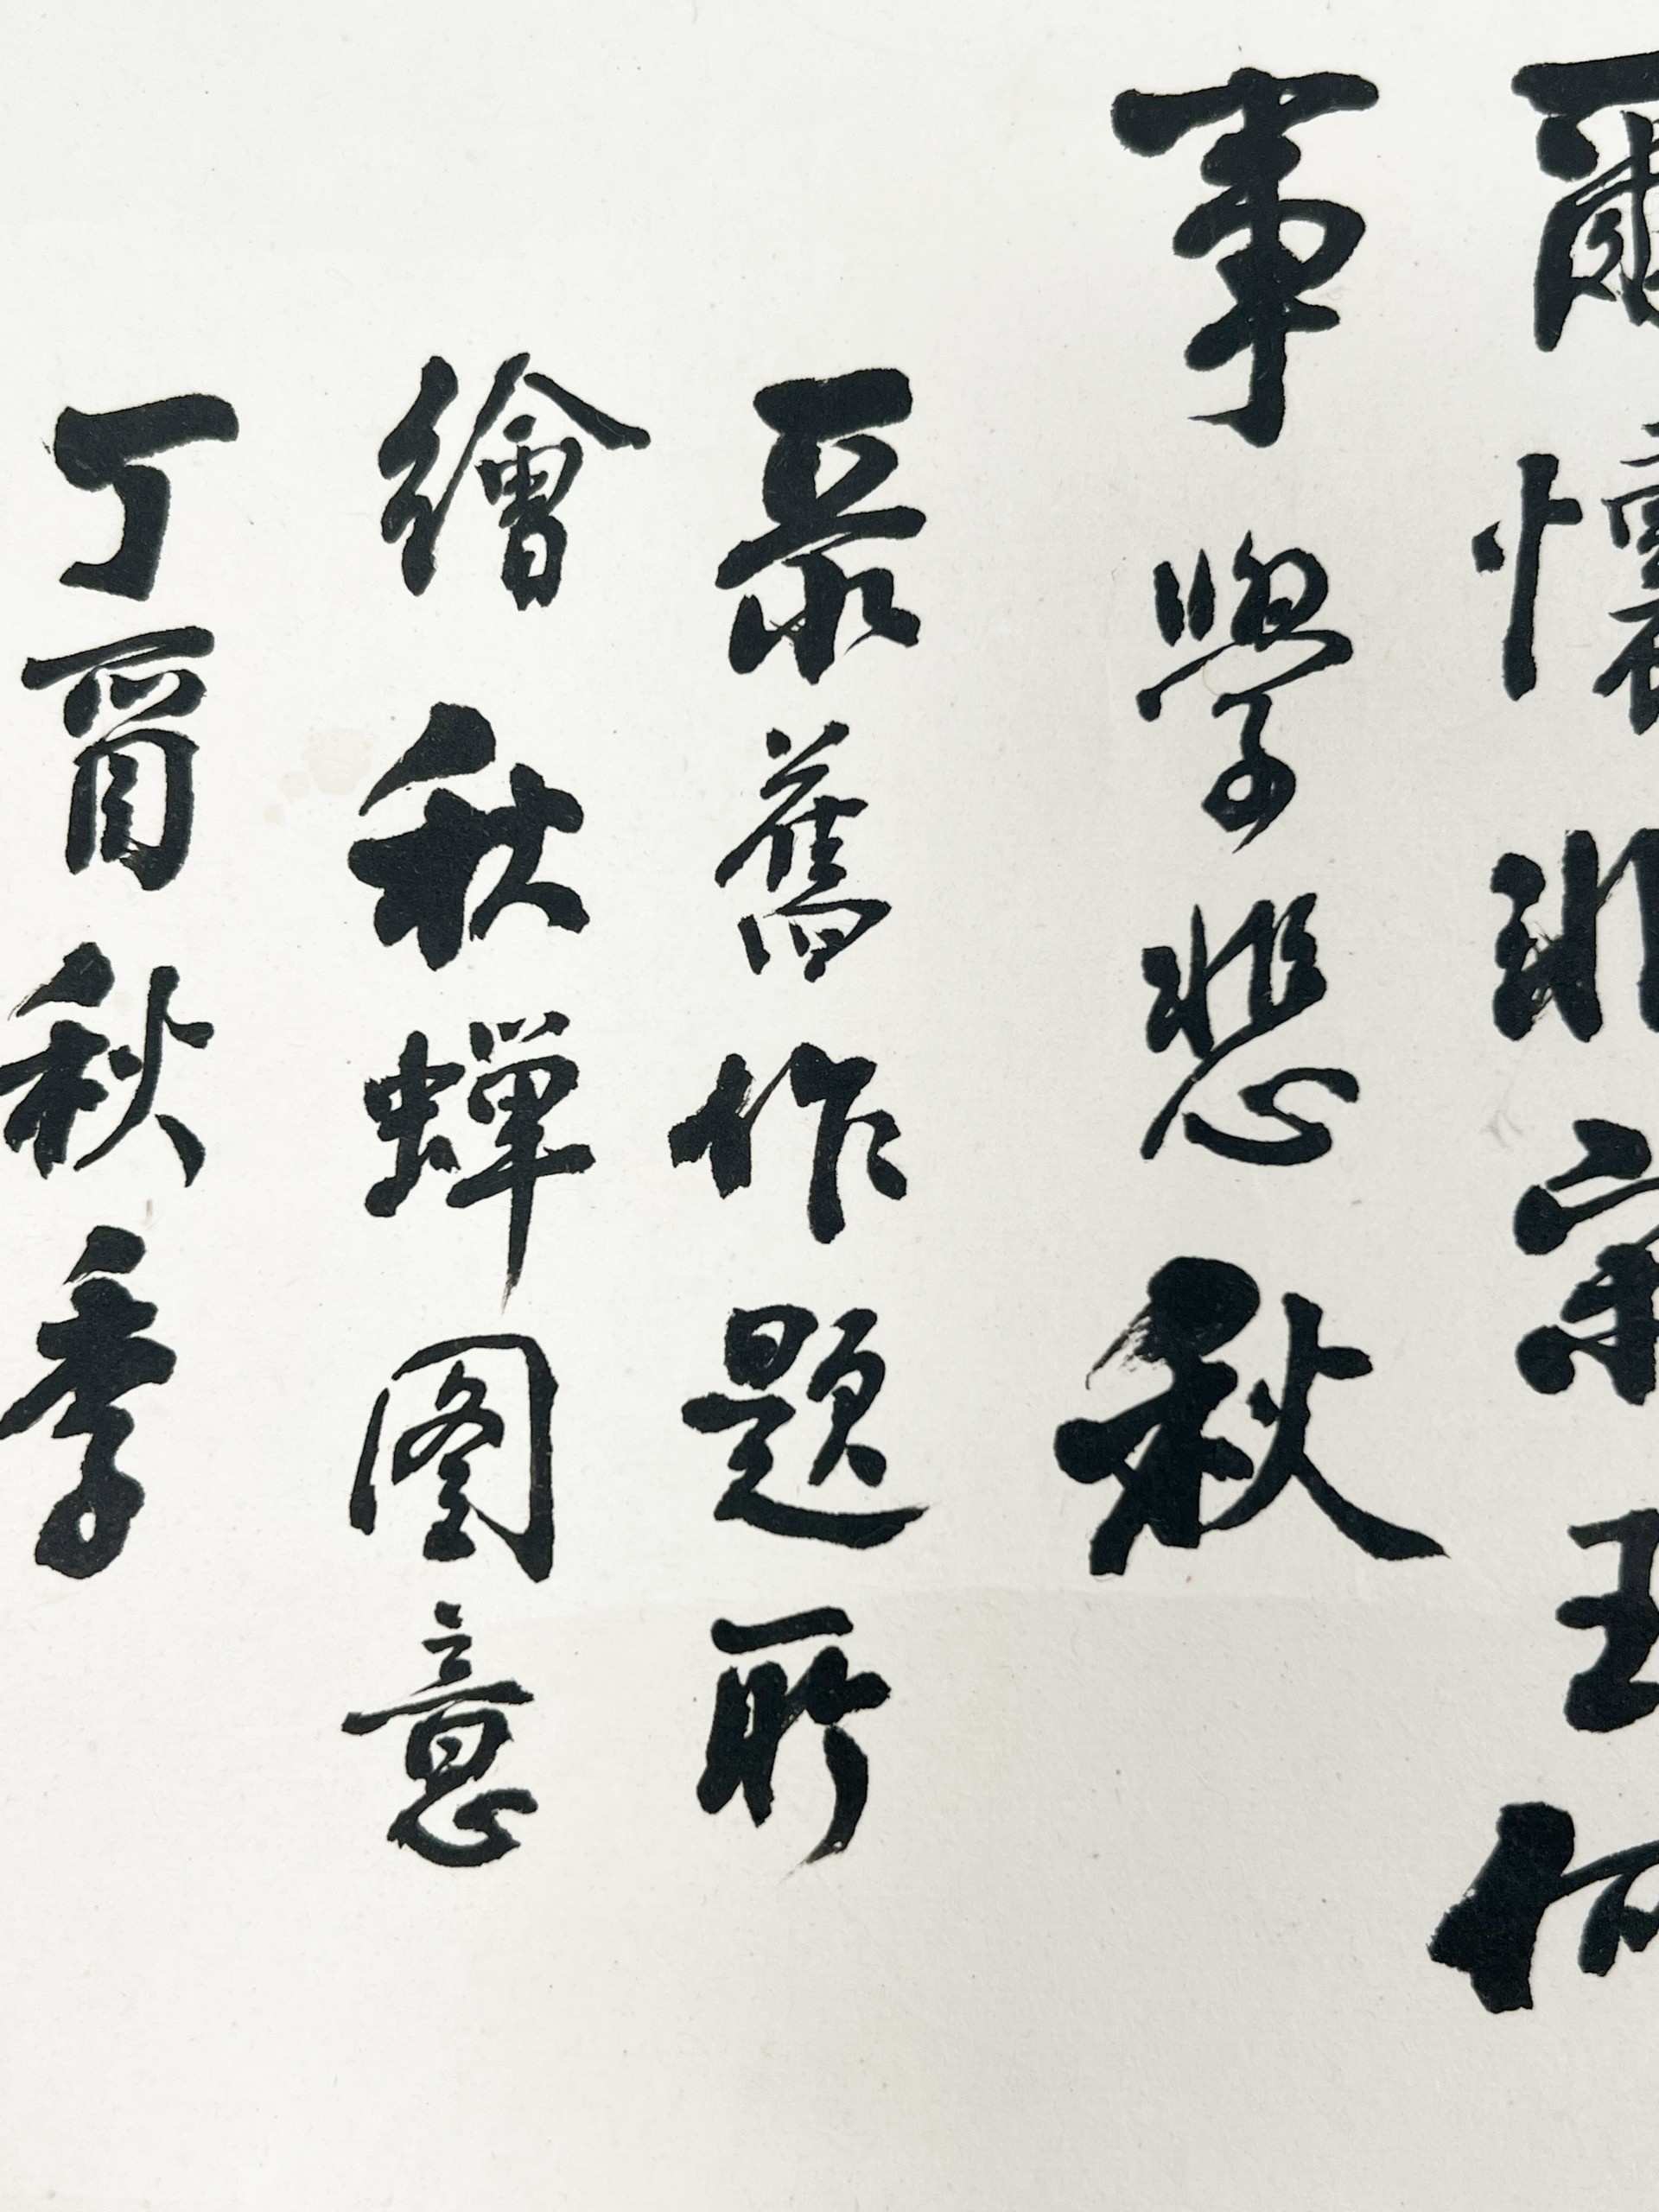 爾懷非宋玉何
事學悲秋
录舊作題所
繪秋蟬圖意
丁酉秋季